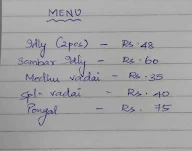 MENU
Idly (2pcs) - Rs. 48
Sambar Idly - Rs. 60
Medhu vadai - Rs. 35
Spl- vadai - Rs. 40
Pongal - Rs. 75